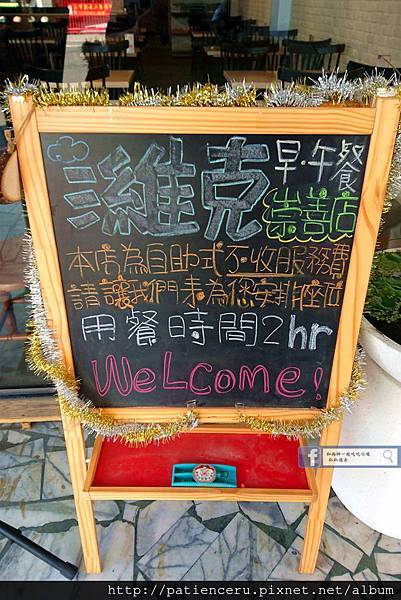 濰克 早.午餐
崇善店
本店為自助式不收服務費
請讓我們來為您安排座位
用餐時間2hr
WeLCome!
f 和兩絆一起吃吃喝喝
http://patienceru.pixnet.net/album